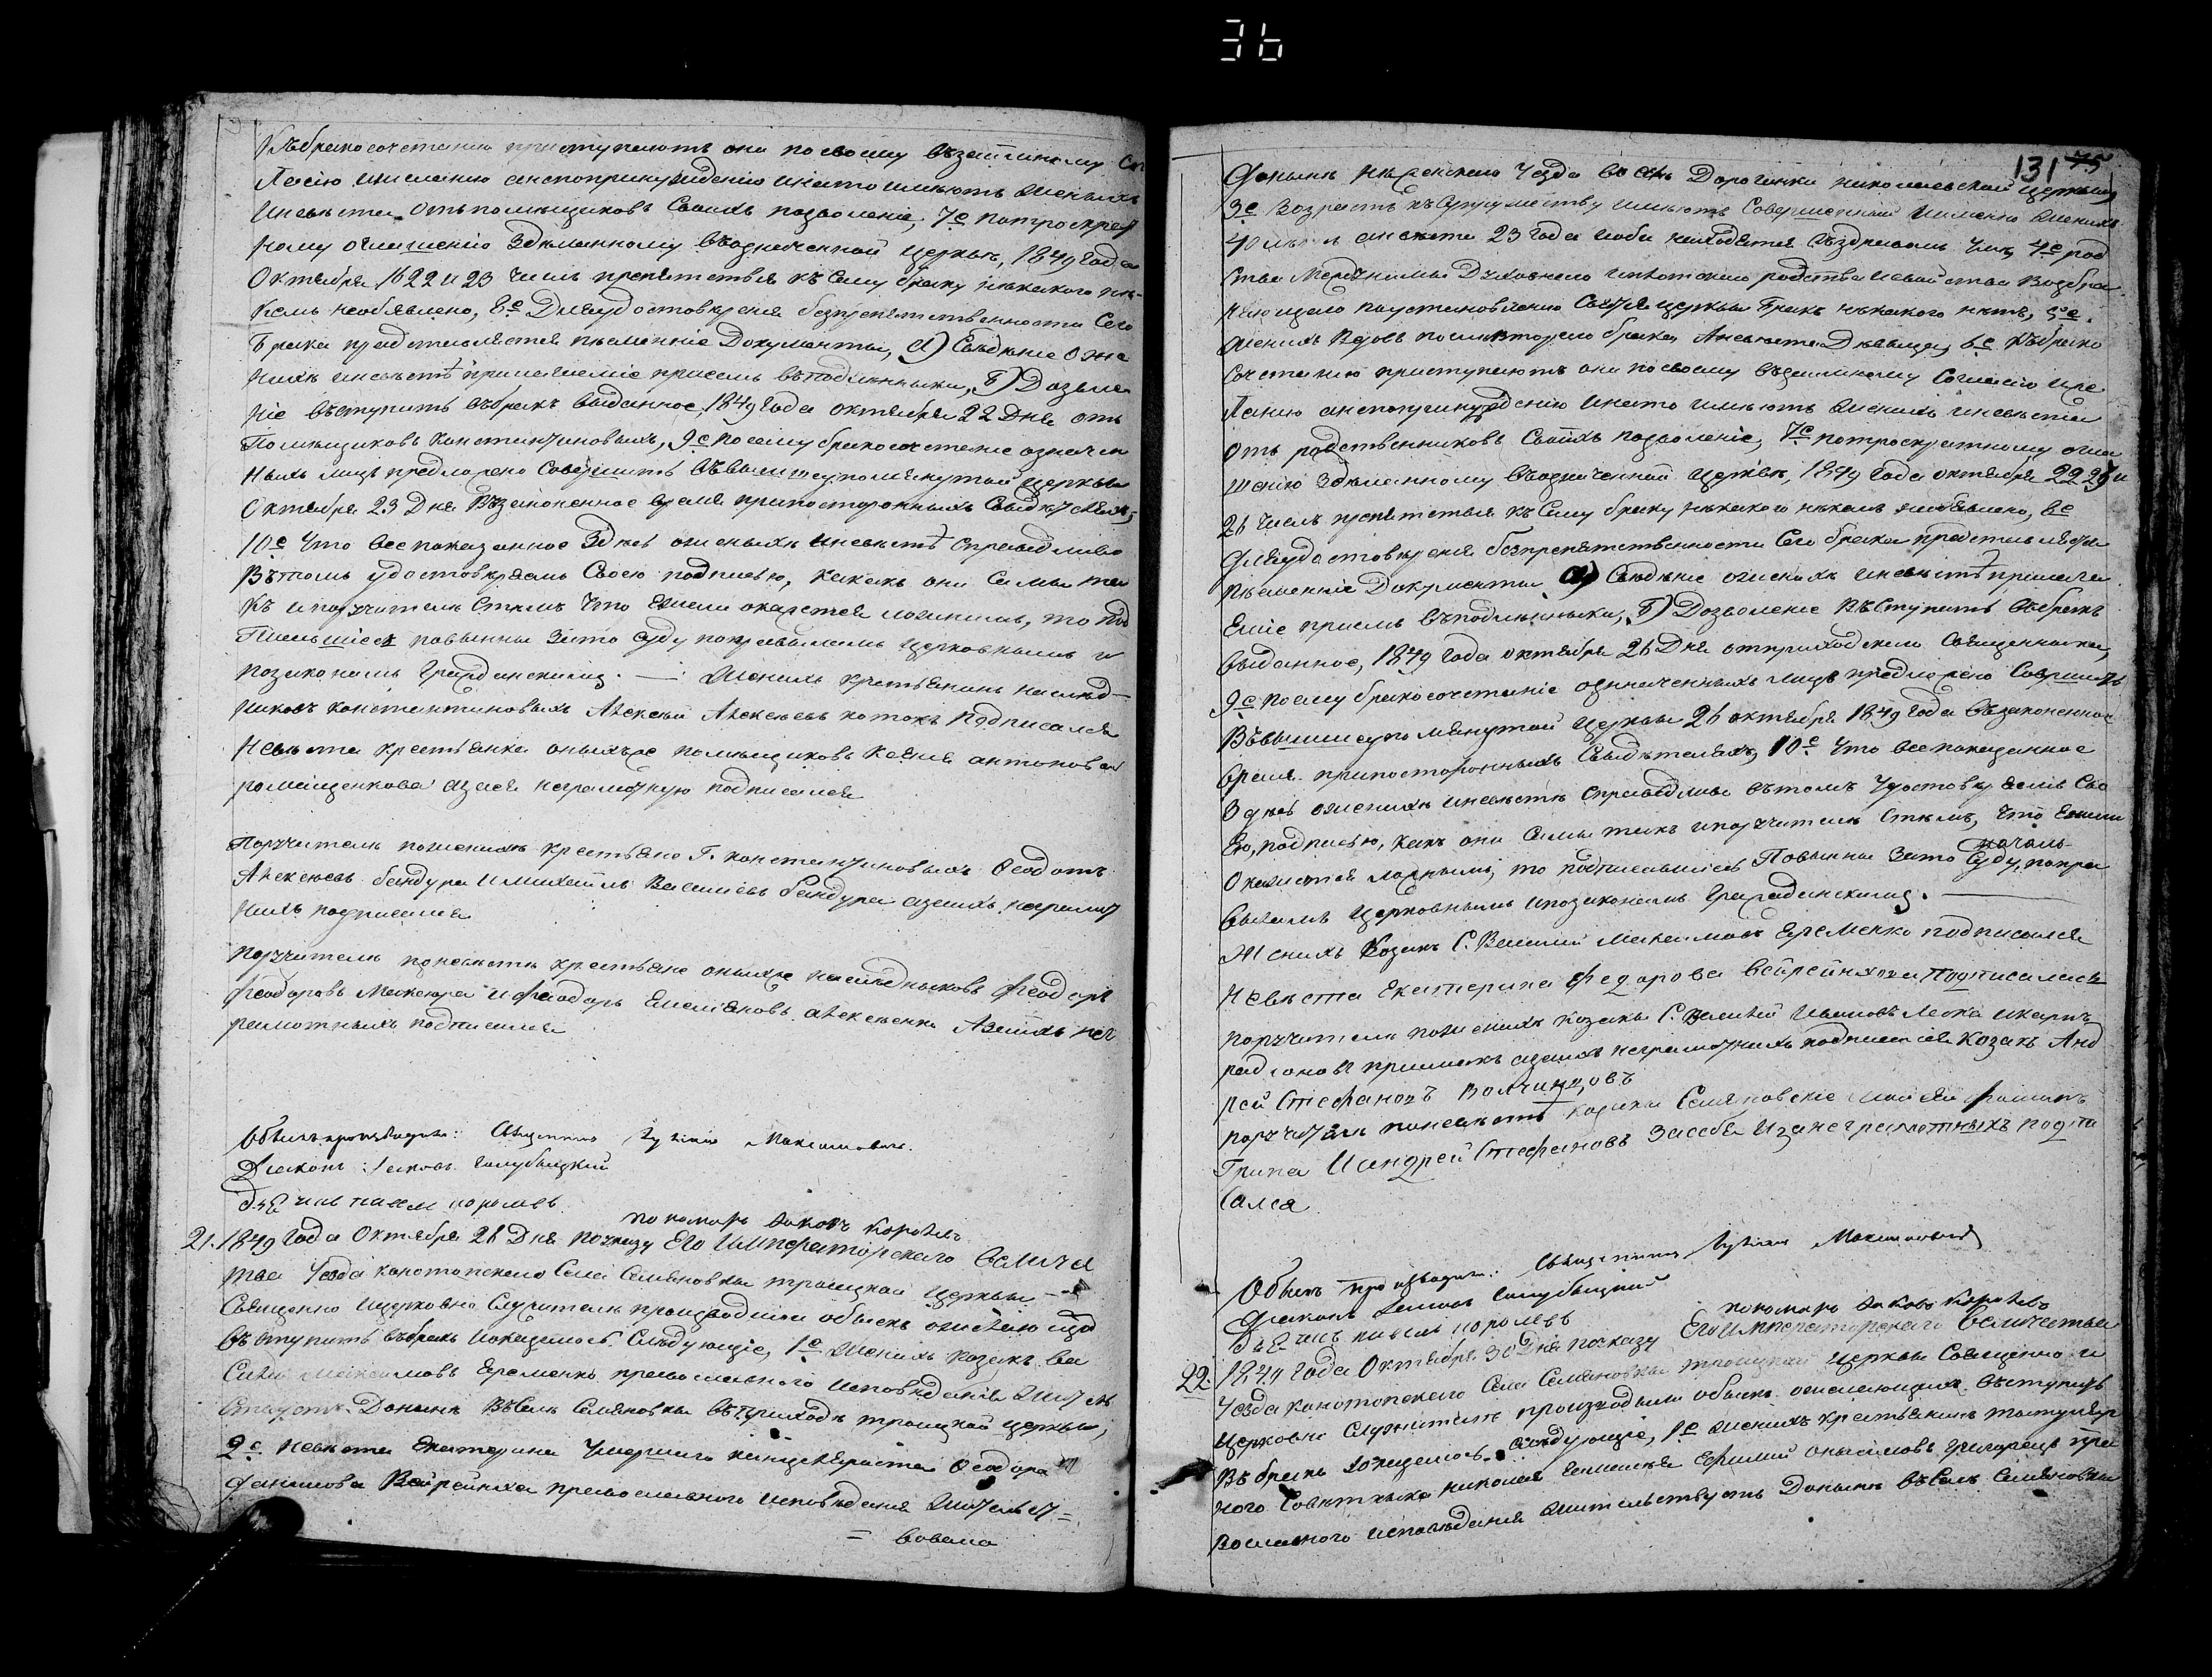 36
Къбракосочетанию приступаютъ они посвоему взаимному Со
гласію ижеланію анепопринужденію инато имеютъ женихъ
иневеста отъпомещиковъ Своихъ позволеніе, 7е потроекрат
ному оглашенію Зделанному въозначенной церкви, 1849 года
Октября 16 22 и 23 числъ препятствія къ Сему браку никакого ни
кемъ необявлено, 8е Дляудостовереня безпрепятственности Сего
брака представляется писменніе Документы, А) Сведеніе о же
нихе иневесте прилагаеміе присемъ въподлиннику, Б) Дозволе
ніе въступить въбракъ выданное, 1849 года октября 22 Дня отъ
Помещиковъ Константиновыхъ, 9е посему бракосочетаніе означен
ныхъ лицъ предложено Совершить въвышеупомянутой церкви
Октября 23 Дня въЗаконенное время припостороннихъ Свидетеляхъ,
10е Что все показанное Здесь оженихе иневесте Справедливо
Вътомъ удостоверяемъ Своею подписью, какъ они Самы та
къ ипоручители Стемъ что ежели окажется ложнымъ, то под
писавшіеся повынны Зато Суду поправиламъ церковнымъ и
позаконамъ Гражданскимъ. — Женихъ крестьянинъ наслед
никовъ константиновыхъ Алексей Алексеевъ котокъ подписался
Невеста крестьянка оныхъже помещиковъ Ксенія антонова
ромащенкова азаея неграмотную подписался
Поручители поженихе крестьяне Г. константиновыхъ Феодотъ
Алексеевъ бандура имихаилъ Василіевъ бандура азаихъ неграмот
ныхъ подписался
Поручители поневесте крестьяне оныхже наследныковъ Феодоръ
Феодоровъ Мажара иФеодоръ Емеліяновъ алексеенко Азаихъ нег
рамотныхъ подписался
Обыскъ производили: Священникъ Максимовичъ.
Діаконъ Іаковъ Голубыцкій
Дьячокъ павелъ королевъ
пономарь Яковъ Королевъ
21. 1849 года Октября 26 Дня поуказу Его Императорскаго Величе
тва Уезда конотопскаго Села Семяновки троицкой церкви
Священно ицерковно Служители производили обыскъ ожелаю щод
въступить въбракъ иоказалось Следующіе, 1е Женихъ козакъ Ва
Силій Максимовъ Еременко православного исповеданія жител
ствуетъ Доныне въСеле Семяновки въприходе троицкой церкви,
2е Невеста Екатерина Умершаго канцеляриста Феодора
Данилова Вейрейнхова православного исповедания жителст=
= вовала
131 75
Доныне Неженскаго Уезда во Селе Дорогинки николаевской церкви,
3е Возрастъ къСупружеству имеютъ Совершенный именно женихъ
40 летъ аневеста 23 года иоба находятся въздравомъ Уме, 4е род
ства Межъними Духовнаго иплотскаго родства исвойства Возбра
няющаго поустановленію Святія церкви бракъ никакого нетъ, 5е.
Женихъ Вдовъ послевторого брака, Аневеста Девица, 6е Къбрако
Сочетанію приступаютъ они посвоему взаимному Согласію иже
ланію анепопринужденію инато имеютъ женихъ иневеста
отъ родственниковъ Своихъ позволеніе, 7е потроекратному огла
шенію Зделанному въозначенной церкви, 1849 года октября 22 23 и
26 числъ препятствія къ Сему браку никакого никемъ необявлено, 8е
Дляудостовереня безпрепятственности Сего брака представляются
писменніе Документы А) Сведеніе оженихе иневесте прилага
еміе присемъ въподлиннику, Б) Дозволеніе въСтупить въбракъ
выданное, 1849 года октября 26 Дня отприходскаго Священника,
9е посему бракосочетаніе означенныхъ лицъ предложено Совершить
Въвышшеупомянутой церкви 26 октября 1849 года възаконенное
время припостороннихъ Свидетеляхъ, 10е Что все показанное
Здесь оженихе иневесте Справедливо вътомъ Удостоверяемъ Сво
Ею, подписью, какъ они Самы такъ ипоручители Стемъ, Что Ежели
Окажется ложнымъ, то подписавшіеся Повынны Зато Суду, попра
виламъ Церковнымъ ипозаконамъ Гражданскимъ.
Женихъ Козакъ С. Василий Максимовъ Еременко подписался
Невеста Екатерина Федорова Вейрейнхова Подписалась
поручители поженихе козаки С. Василий Ивановъ икарпъ
радіоновъ азаихъ неграмотныхъ подписался Козакъ Анд
рей Стефановъ Волчинцовъ
поручители поневесте козаки Семяновскіе
Грипа Иандрей Стефановъ Засебя Изанеграмотныхъ подпи
сался
Обыскъ производили: Священникъ Максимовичъ
Діаконъ Голубыцкій
Дьячокъ павелъ королевъ
пономарь Яковъ Королевъ
22. 1849 года Октября 30 Дня поуказу Его Императорскаго Величества
Уезда конотопскаго Села Семяновки троицкой церкви Священно и
церковно Служители производили обыскъ ожелающихъ въступить
Въ бракъ иоказалось Следующіе, 1е женихъ крестьянинъ титуляр
ного Советныка николая Ефимій онысимовъ григорецъ пра
вославного исповеданія жителствуетъ Доныне въСеле Семяновки